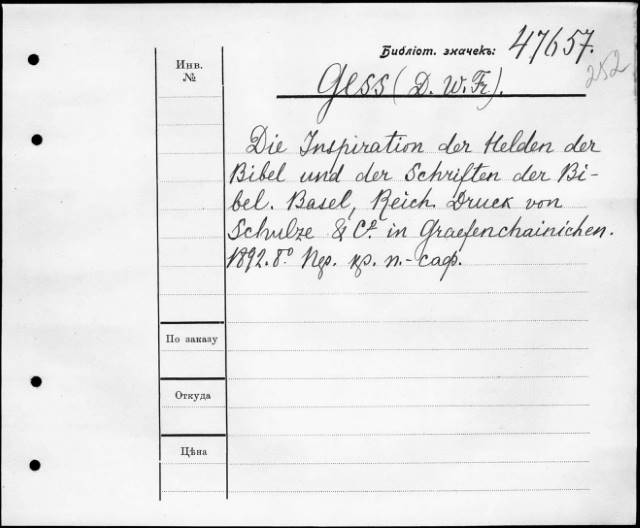 Библіот. значекъ: 47657.
252
Инв.
№
Gess (D. W. Fr.).
Die Inspiration der Helden der
Bibel und der Schriften der Bi-
bel. Basel, Reich. Druck von
Schulze & Cº in Graefenchainichen.
1892. 8º Пер. кр. п.-саф.
По заказу
Откуда
Цѣна